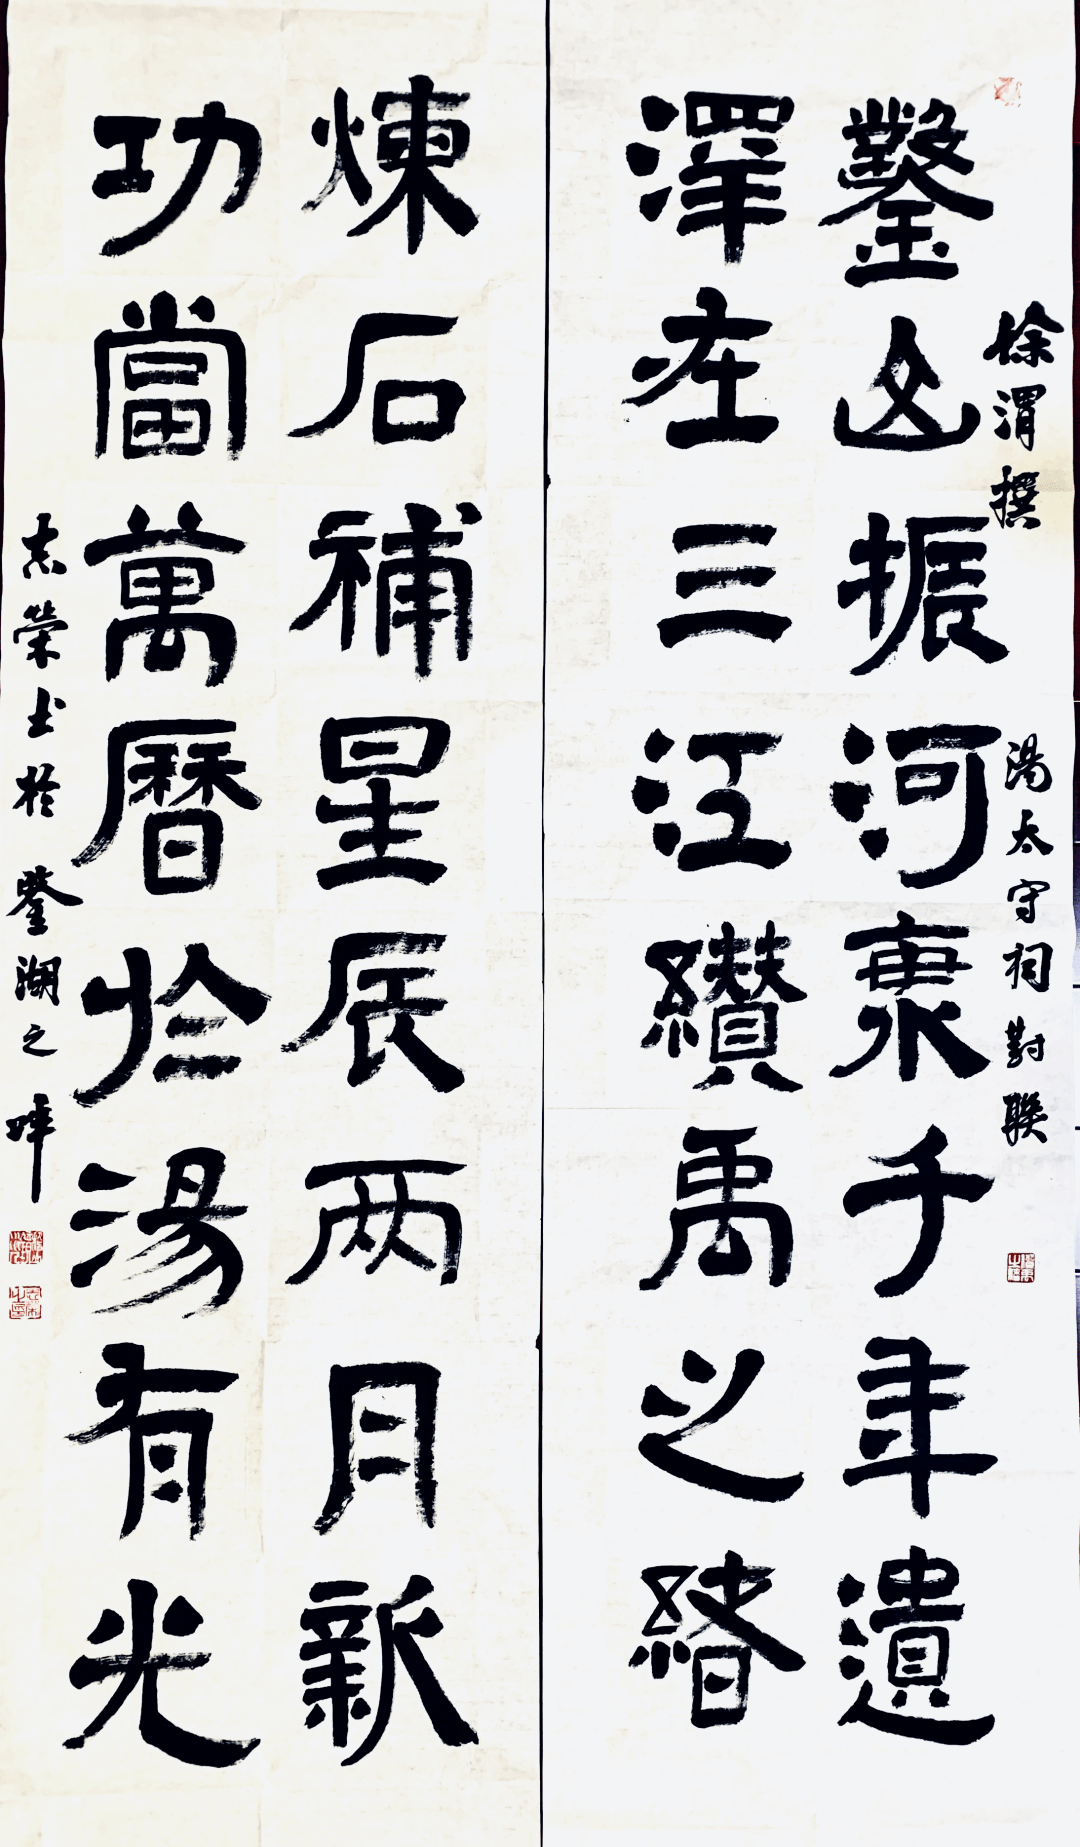 徐渭撰 湯太守祠對聯
鑿山振河海千年遺
澤在三江纘禹之緒
煉石補星辰两月新
功當萬曆於湯有光
志榮书於鑒湖之畔